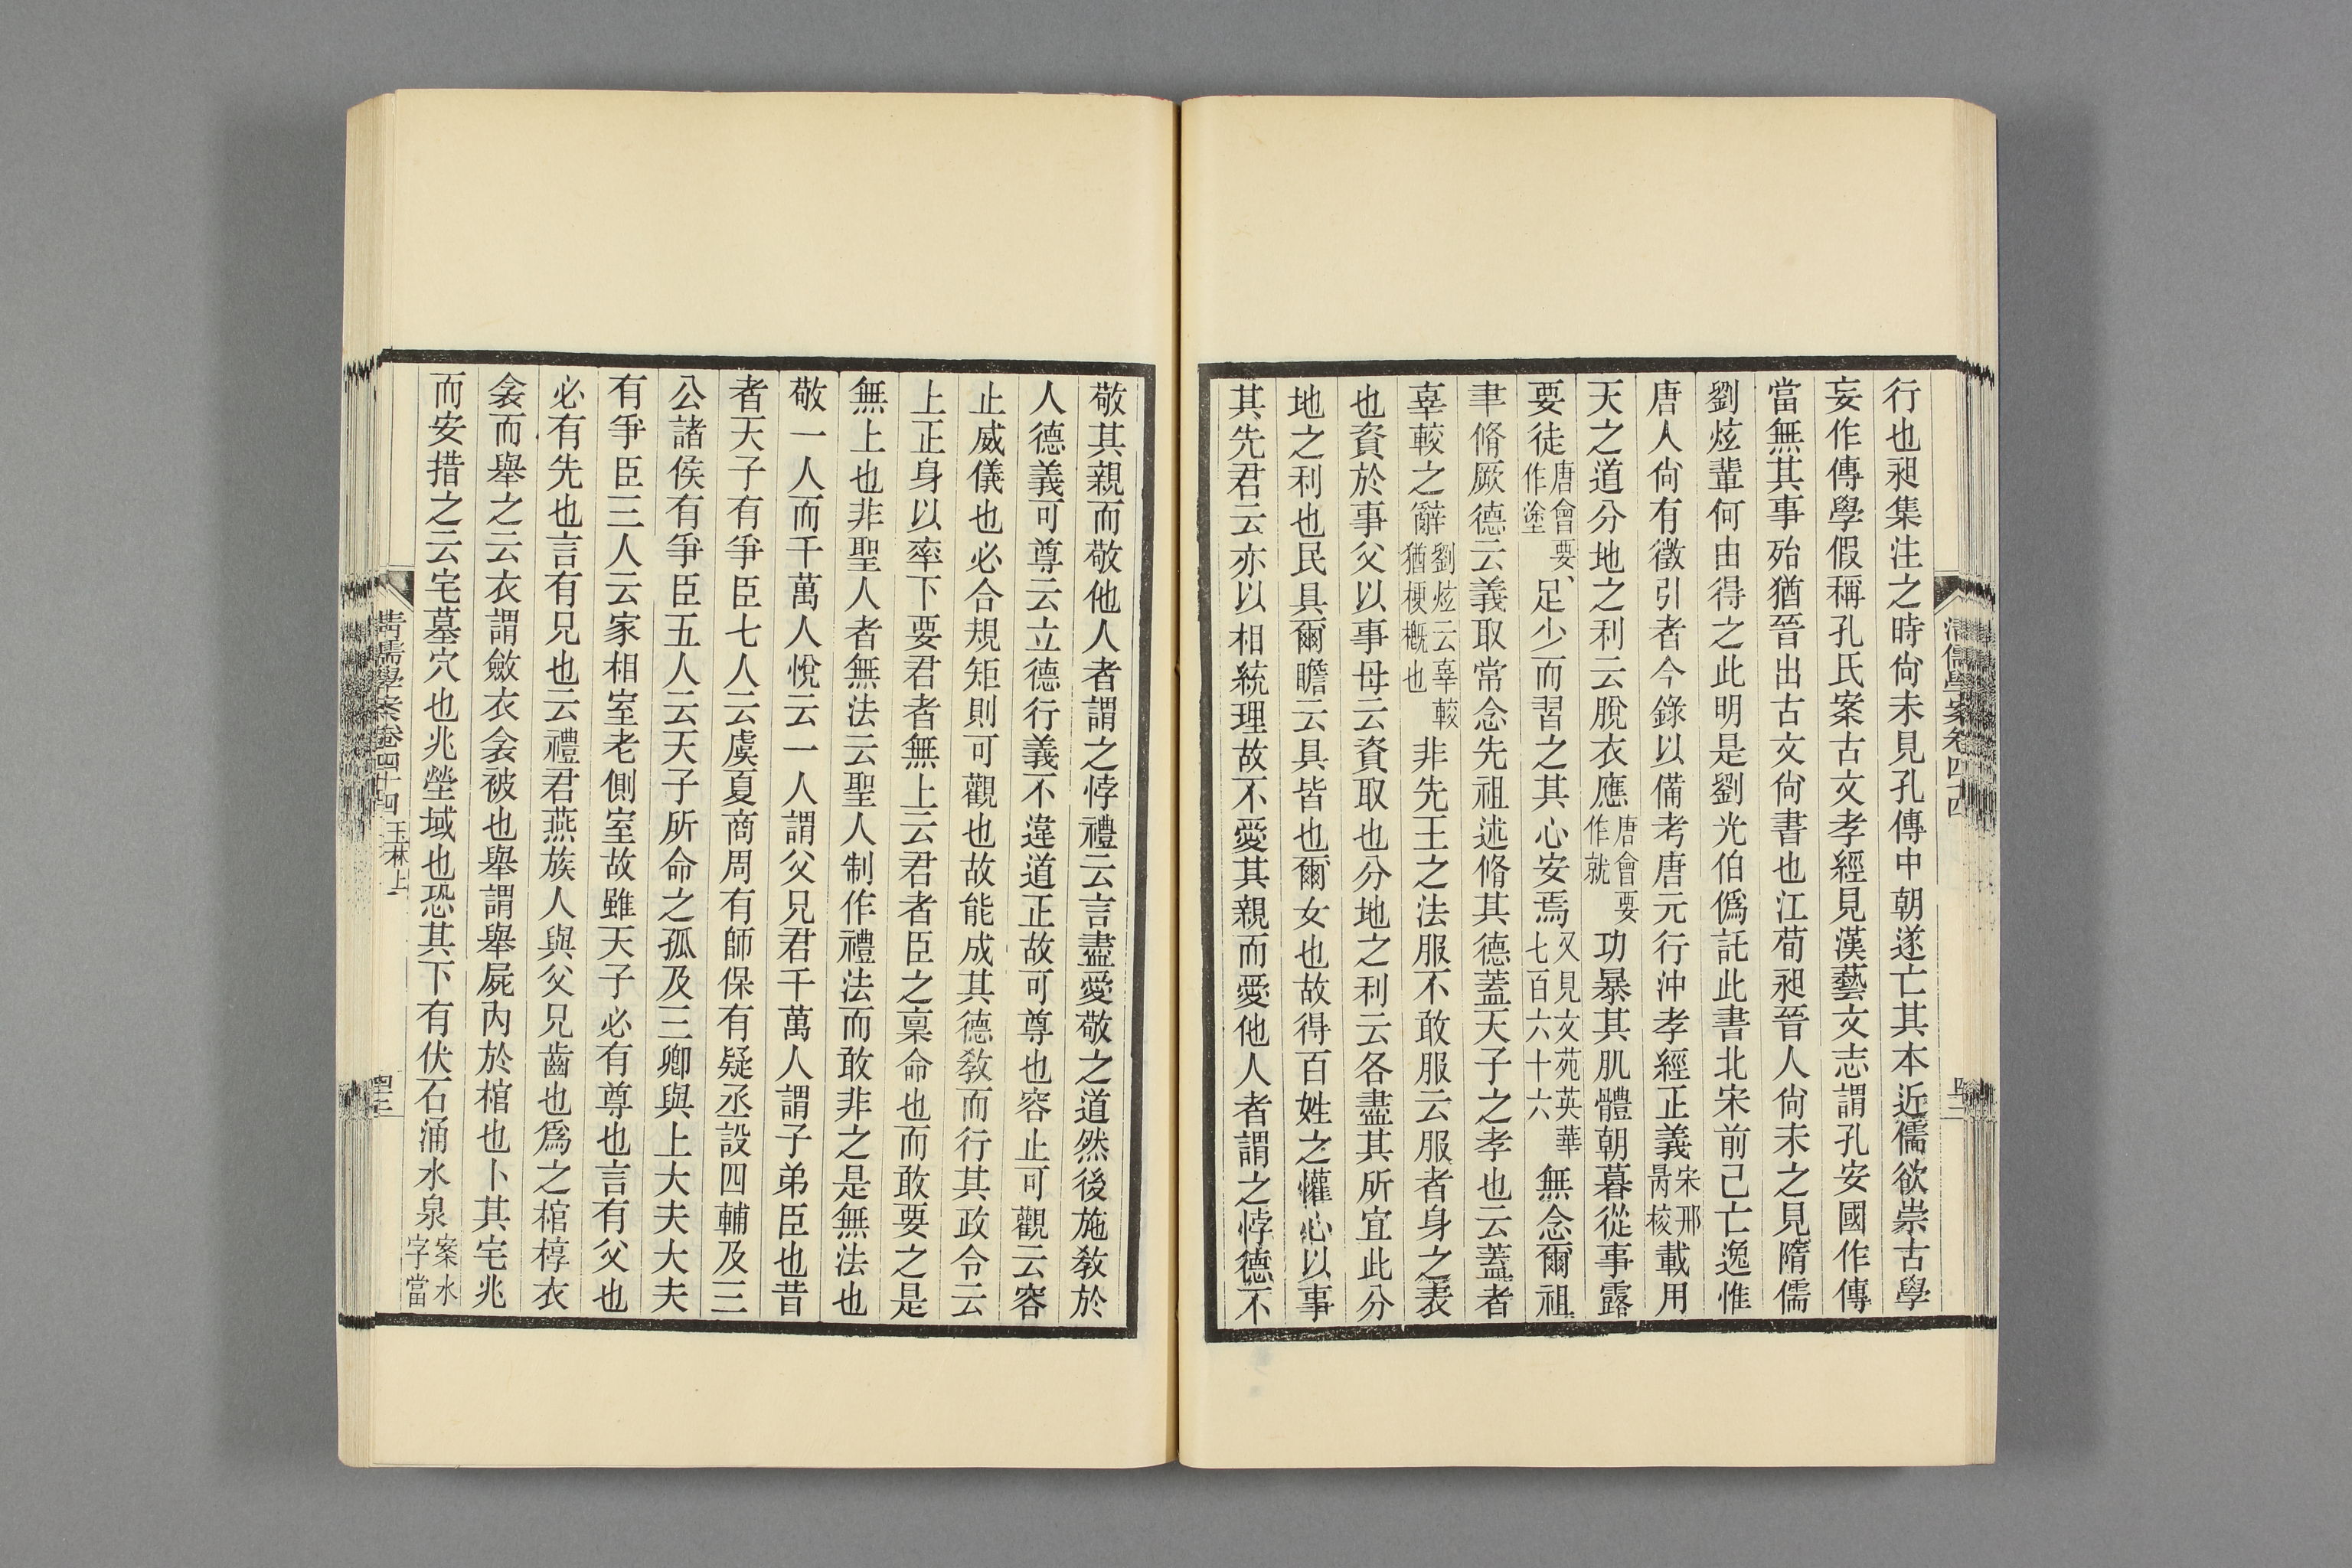 行也昶集注之時尙未見孔傳中朝遂亡其本近儒欲崇古學
妄作傳學假稱孔氏案古文孝經見漢藝文志謂孔安國作傳
當無其事殆猶晉出古文尙書也江荀昶晉人尙未之見隋儒
劉炫輩何由得之此明是劉光伯僞託此書北宋前己亡逸惟
唐人尙有徵引者今錄以備考唐元行沖孝經正義宋邢昺校載用
天之道分地之利云脫衣應唐會要作就功暴其肌體朝暮從事露
要徒唐會要作塗足少而習之其心安焉又見文苑英華七百六十六無念爾祖
聿脩厥德云義取常念先祖述脩其德蓋天子之孝也云蓋者
辜較之辭劉炫云辜較猶梗概也非先王之法服不敢服云服者身之表
也資於事父以事母云資取也分地之利云各盡其所宜此分
地之利也民具爾瞻云具皆也爾女也故得百姓之懽心以事
其先君云亦以相統理故不愛其親而愛他人者謂之悖德不
敬其親而敬他人者謂之悖禮云言盡愛敬之道然後施敎於
人德義可尊云立德行義不違道正故可尊也容止可觀云容
止威儀也必合規矩則可觀也故能成其德敎而行其政令云
上正身以率下要君者無上云君者臣之稟命也而敢要之是
無上也非聖人者無法云聖人制作禮法而敢非之是無法也
敬一人而千萬人悅云一人謂父兄君千萬人謂子弟臣也昔
者天子有爭臣七人云虞夏商周有師保有疑丞設四輔及三
公諸侯有爭臣五人云天子所命之孤及三卿與上大夫大夫
有爭臣三人云家相室老側室故雖天子必有尊也言有父也
必有先也言有兄也云禮君燕族人與父兄齒也爲之棺椁衣
衾而舉之云衣謂斂衣衾被也舉謂舉屍內於棺也卜其宅兆
而安措之云宅墓穴也兆塋域也恐其下有伏石涌水泉案水字當
清儒學案卷四十四 玉林上
四三